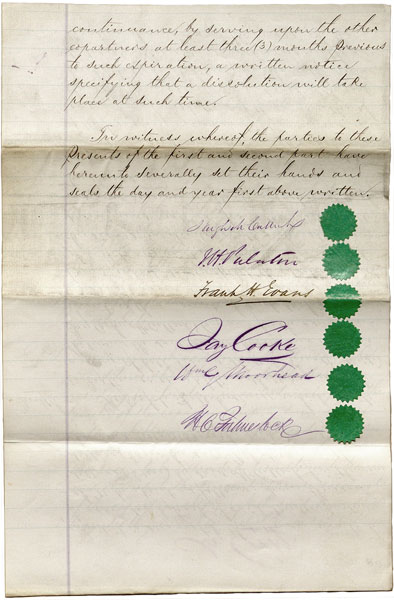 continuance, by serving upon the other
copartners at least three (3) months previous
to such expiration, a written notice
specifying that a dissolution will take
place at such time.
In witness whereof, the parties to these
Presents of the first and second part have
hereunto severally set their hands and
seals the day and year first above written.
Hugh McCulloch
J.H. Puleston
Frank H. Evans
Jay Cooke
Wm G Moorhead
H C Fahnestock